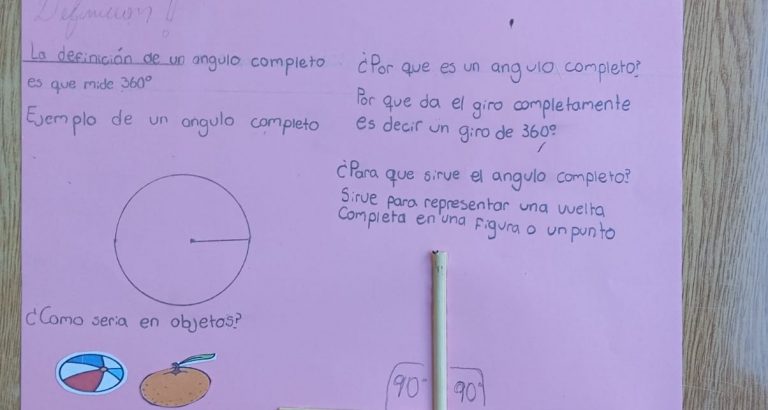 Definición!!
La definición de un angulo completo
es que mide 360°
Ejemplo de un angulo completo
¿Como seria en objetos?
¿Por que es un angulo completo?
Por que da el giro completamente
es decir un giro de 360°
¿Para que sirve el angulo completo?
Sirve para representar una vuelta
Completa en una figura o un punto
90° 90°